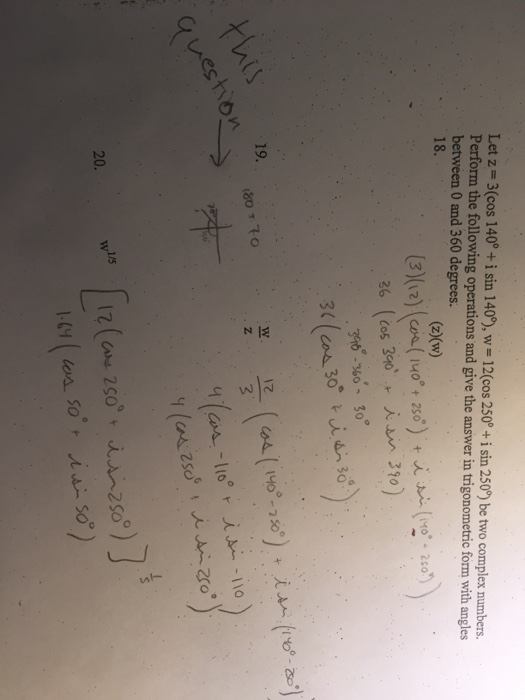 Let z = 3(cos 140° + i sin 140°), w = 12(cos 250° + i sin 250°) be two complex numbers.
Perform the following operations and give the answer in trigonometric form with angles
between 0 and 360 degrees.
18. (z)(w)
(3)(12) (cos(140° + 250°) + i sin(140° + 250°))
36 (cos 390° + i sin 390)
390° - 360° = 30°
36 (cos 30° + i sin 30°)
19. w/z
12/3 (cos(140° - 250°) + i sin(140° - 250°)
4 (cos -110° + i sin -110)
4 (cos 250° + i sin 250°)
180 + 70
this
question →
20. w^1/5
[12 (cos 250° + i sin 250°)]^1/5
1.64 (cos 50° + i sin 50°)